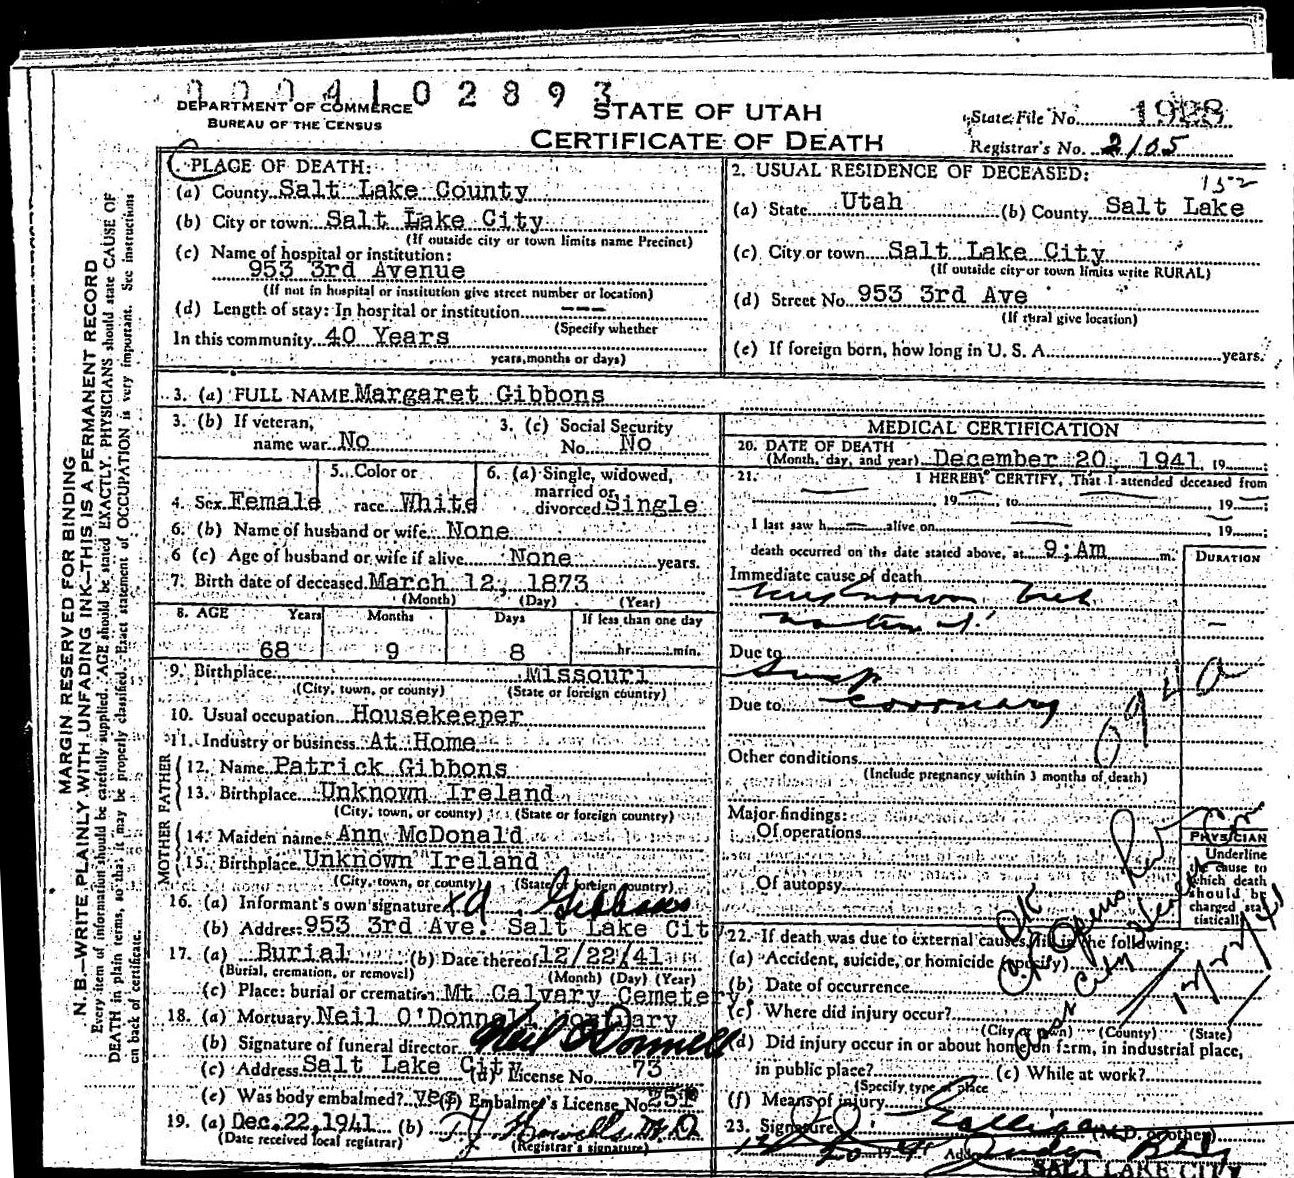 0004102893
DEPARTMENT OF COMMERCE
BUREAU OF THE CENSUS
STATE OF UTAH
CERTIFICATE OF DEATH
State File No. 1928
Registrar's No. 2105
MARGIN RESERVED FOR BINDING
N. B.—WRITE PLAINLY WITH UNFADING INK—THIS IS A PERMANENT RECORD
Every item of information should be carefully supplied. AGE should be stated EXACTLY. PHYSICIANS should state CAUSE OF
DEATH in plain terms, so that it may be properly classified. Exact statement of OCCUPATION is very important. See instructions
on back of certificate.
1. PLACE OF DEATH:
(a) County Salt Lake County
(b) City or town Salt Lake City
(If outside city or town limits name Precinct)
(c) Name of hospital or institution:
953 3rd Avenue
(If not in hospital or institution give street number or location)
(d) Length of stay: In hospital or institution ---
(Specify whether
In this community 40 Years
years, months or days)
2. USUAL RESIDENCE OF DECEASED:
152
(a) State Utah (b) County Salt Lake
(c) City or town Salt Lake City
(If outside city or town limits write RURAL)
(d) Street No. 953 3rd Ave
(If rural give location)
(e) If foreign born, how long in U. S. A. years.
3. (a) FULL NAME Margaret Gibbons
3. (b) If veteran, name war No
3. (c) Social Security No. No
4. Sex Female
5. Color or race White
6. (a) Single, widowed, married or divorced Single
6. (b) Name of husband or wife None
6 (c) Age of husband or wife if alive None years.
7. Birth date of deceased March 12, 1873
(Month) (Day) (Year)
8. AGE Years Months Days If less than one day
68 9 8 hr. min.
9. Birthplace Missouri
(City, town, or county) (State or foreign country)
10. Usual occupation Housekeeper
11. Industry or business At Home
FATHER
12. Name Patrick Gibbons
13. Birthplace Unknown Ireland
(City, town, or county) (State or foreign country)
MOTHER
14. Maiden name Ann McDonald
15. Birthplace Unknown Ireland
(City, town, or county) (State or foreign country)
16. (a) Informant's own signature Gibbons
(b) Address 953 3rd Ave. Salt Lake City
17. (a) Burial (b) Date thereof 12/22/41
(Burial, cremation, or removal) (Month) (Day) (Year)
(c) Place: burial or cremation Mt Calvary Cemetery
18. (a) Mortuary Neil O'Donnell Mortuary
(b) Signature of funeral director Neil O'Donnell
(c) Address Salt Lake City (d) License No. 73
(e) Was body embalmed? yes (f) Embalmer's License No. 251
19. (a) Dec. 22, 1941 (b) M.D.
(Date received local registrar) (Registrar's signature)
MEDICAL CERTIFICATION
20. DATE OF DEATH
(Month, day, and year) December 20, 1941 19
21. I HEREBY CERTIFY, That I attended deceased from
19 to 19
I last saw h alive on 19
death occurred on the date stated above, at 9:Am m.
DURATION
Immediate cause of death
unknown but
natural
Due to
Due to coronary
094 a
Other conditions
(Include pregnancy within 3 months of death)
Major findings:
Of operations
Of autopsy
PHYSICIAN
Underline
the cause to
which death
should be
charged sta-
tistically
OK
12/22/41
22. If death was due to external causes, fill in the following:
(a) Accident, suicide, or homicide (specify)
(b) Date of occurrence
(c) Where did injury occur?
(City or town) (County) (State)
(d) Did injury occur in or about home, on farm, in industrial place,
in public place? (e) While at work?
(Specify type of place
(f) Means of injury
23. Signature (M.D. or other)
Address
SALT LAKE CITY